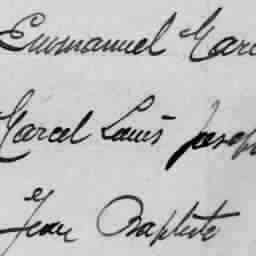 Emmanuel Marc
Marcel Louis Joseph
Jean Baptiste